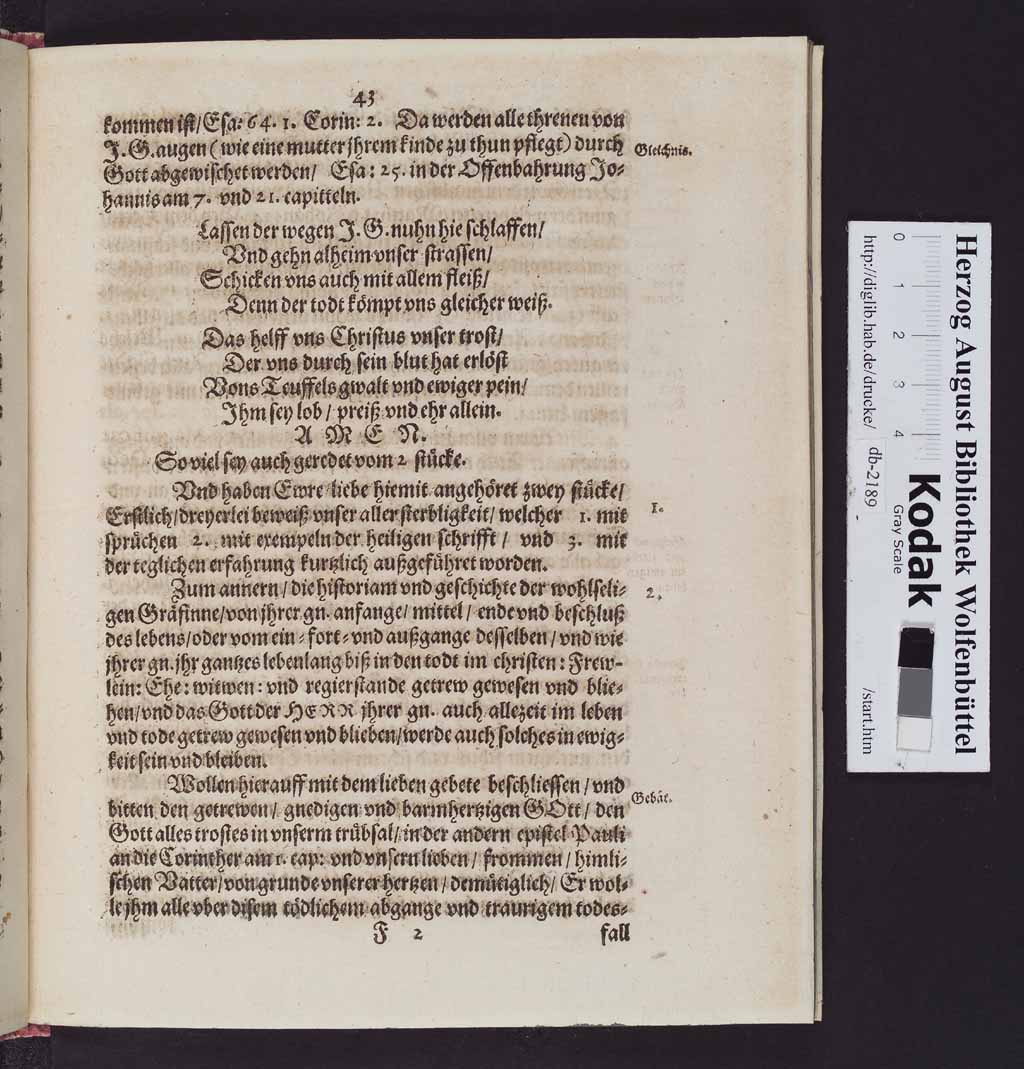 43
kommen ist/Esa: 64. 1. Corin: 2. Da werden alle threnen von
J. G. augen (wie eine mutter jhrem kinde zu thun pflegt) durch
Gleichnis.
Gott abgewischet werden/ Esa: 25. in der Offenbahrung Jo-
hannis am 7. vnd 21. capitteln.
Lassen der wegen J. G. nuhn hie schlaffen/
Vnd gehn alheim vnser strassen/
Schicken vns auch mit allem fleiß/
Denn der todt kömpt vns gleicher weiß.
Das helff vns Christus vnser trost/
Der vns durch sein blut hat erlöst
Vons Teuffels gwalt vnd ewiger pein/
Jhm sey lob/ preiß vnd ehr allein.
A M E N.
So viel sey auch geredet vom 2 stücke.
Vnd haben Ewre liebe hiemit angehöret zwey stücke/
Erstlich/dreyerlei beweiß vnser aller sterbligkeit/ welcher 1. mit
1.
sprüchen 2. mit exempeln der heiligen schrifft/ vnd 3. mit
der teglichen erfahrung kurtzlich außgeführet worden.
Zum annern/ die historiam vnd geschichte der wohlseli-
2.
gen Gräfinne/von jhrer gn. anfange/ mittel/ ende vnd beschluß
des lebens/oder vom ein-fort-vnd außgange desselben/vnd wie
jhrer gn. jhr gantzes lebenlang biß in den todt im christen: Frew-
lein: Ehe: witwen: vnd regierstande getrew gewesen vnd blie-
hen/vnd das Gott der HERR jhrer gn. auch allezeit im leben
vnd tode getrew gewesen vnd blieben/werde auch solches in ewig-
keit sein vnd bleiben.
Wollen hierauff mit dem lieben gebete beschliessen/vnd
bitten den getrewen/ gnedigen vnd barmhertzigen GOtt/ den
Gebät.
Gott alles trostes in vnserm trübsal/ in der andern epistel Pauli
an die Corinther am 1. cap: vnd vnsern lieben/ frommen/ himli-
schen Vatter/von grunde vnserer hertzen/ demütiglich/ Er wol-
le jhm alle vber disem tödlichem abgange vnd traurigem todes-
F 2 fall
Herzog August Bibliothek Wolfenbüttel
Kodak
Gray Scale
0 1 2 3 4
http://diglib.hab.de/drucke/ db-2189 /start.htm